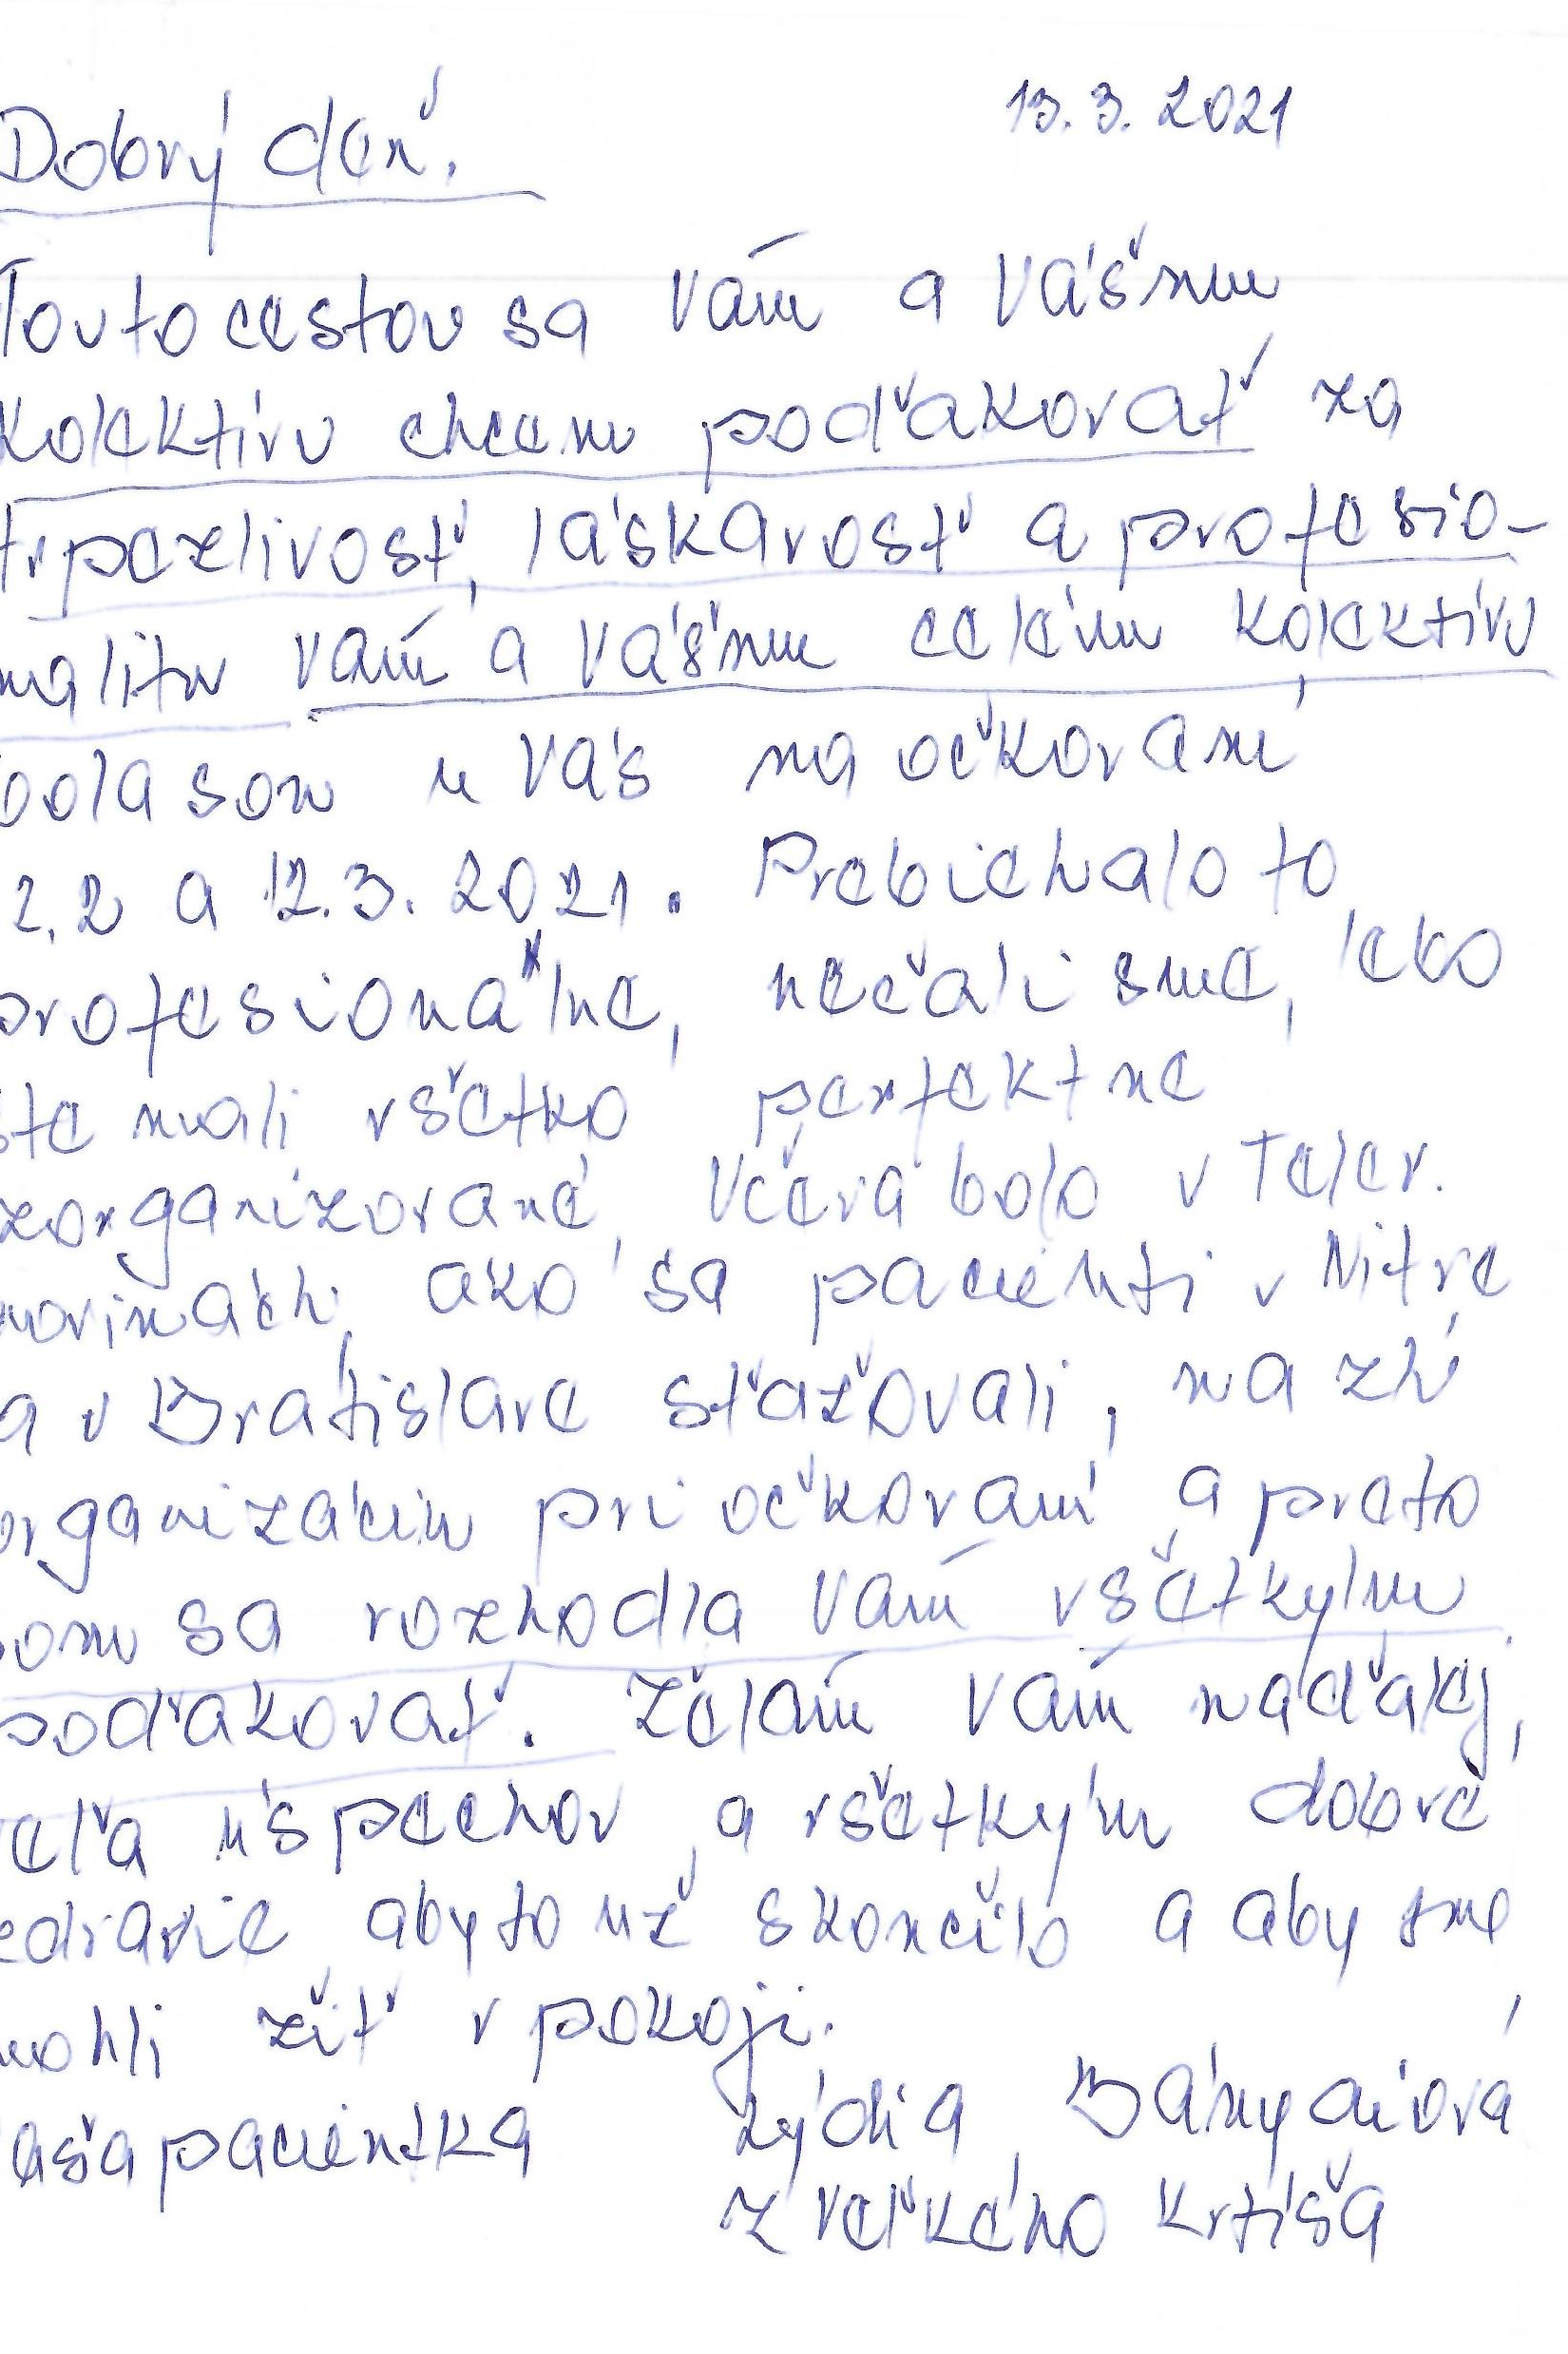 Dobrý deň. 13.3.2021
Touto cestou sa Vám a Vášmu
kolektívu chcem poďakovať za
trpezlivosť, láskavosť a profesio-
nalitu Vám a Vášmu celému kolektívu
bola som u Vás na očkovaní
2.2 a 12.3.2021. Prebiehalo to
profesionálne, nečali sme, lebo
ste mali všetko perfektne
zorganizované, Včera bolo v Telev.
novinách, ako sa pacienti v Nitre
a v Bratislave sťažovali, na zlú
organizáciu pri očkovaní, a preto
som sa rozhodla Vám všetkým
poďakovať. Želám Vám naďalej,
veľa úspechov, a všetkým dobré
zdravie, aby to už skončilo a aby sme
mohli žiť v pokoji.
Vaša pacientka Lýdia
z Veľkého Krtíša